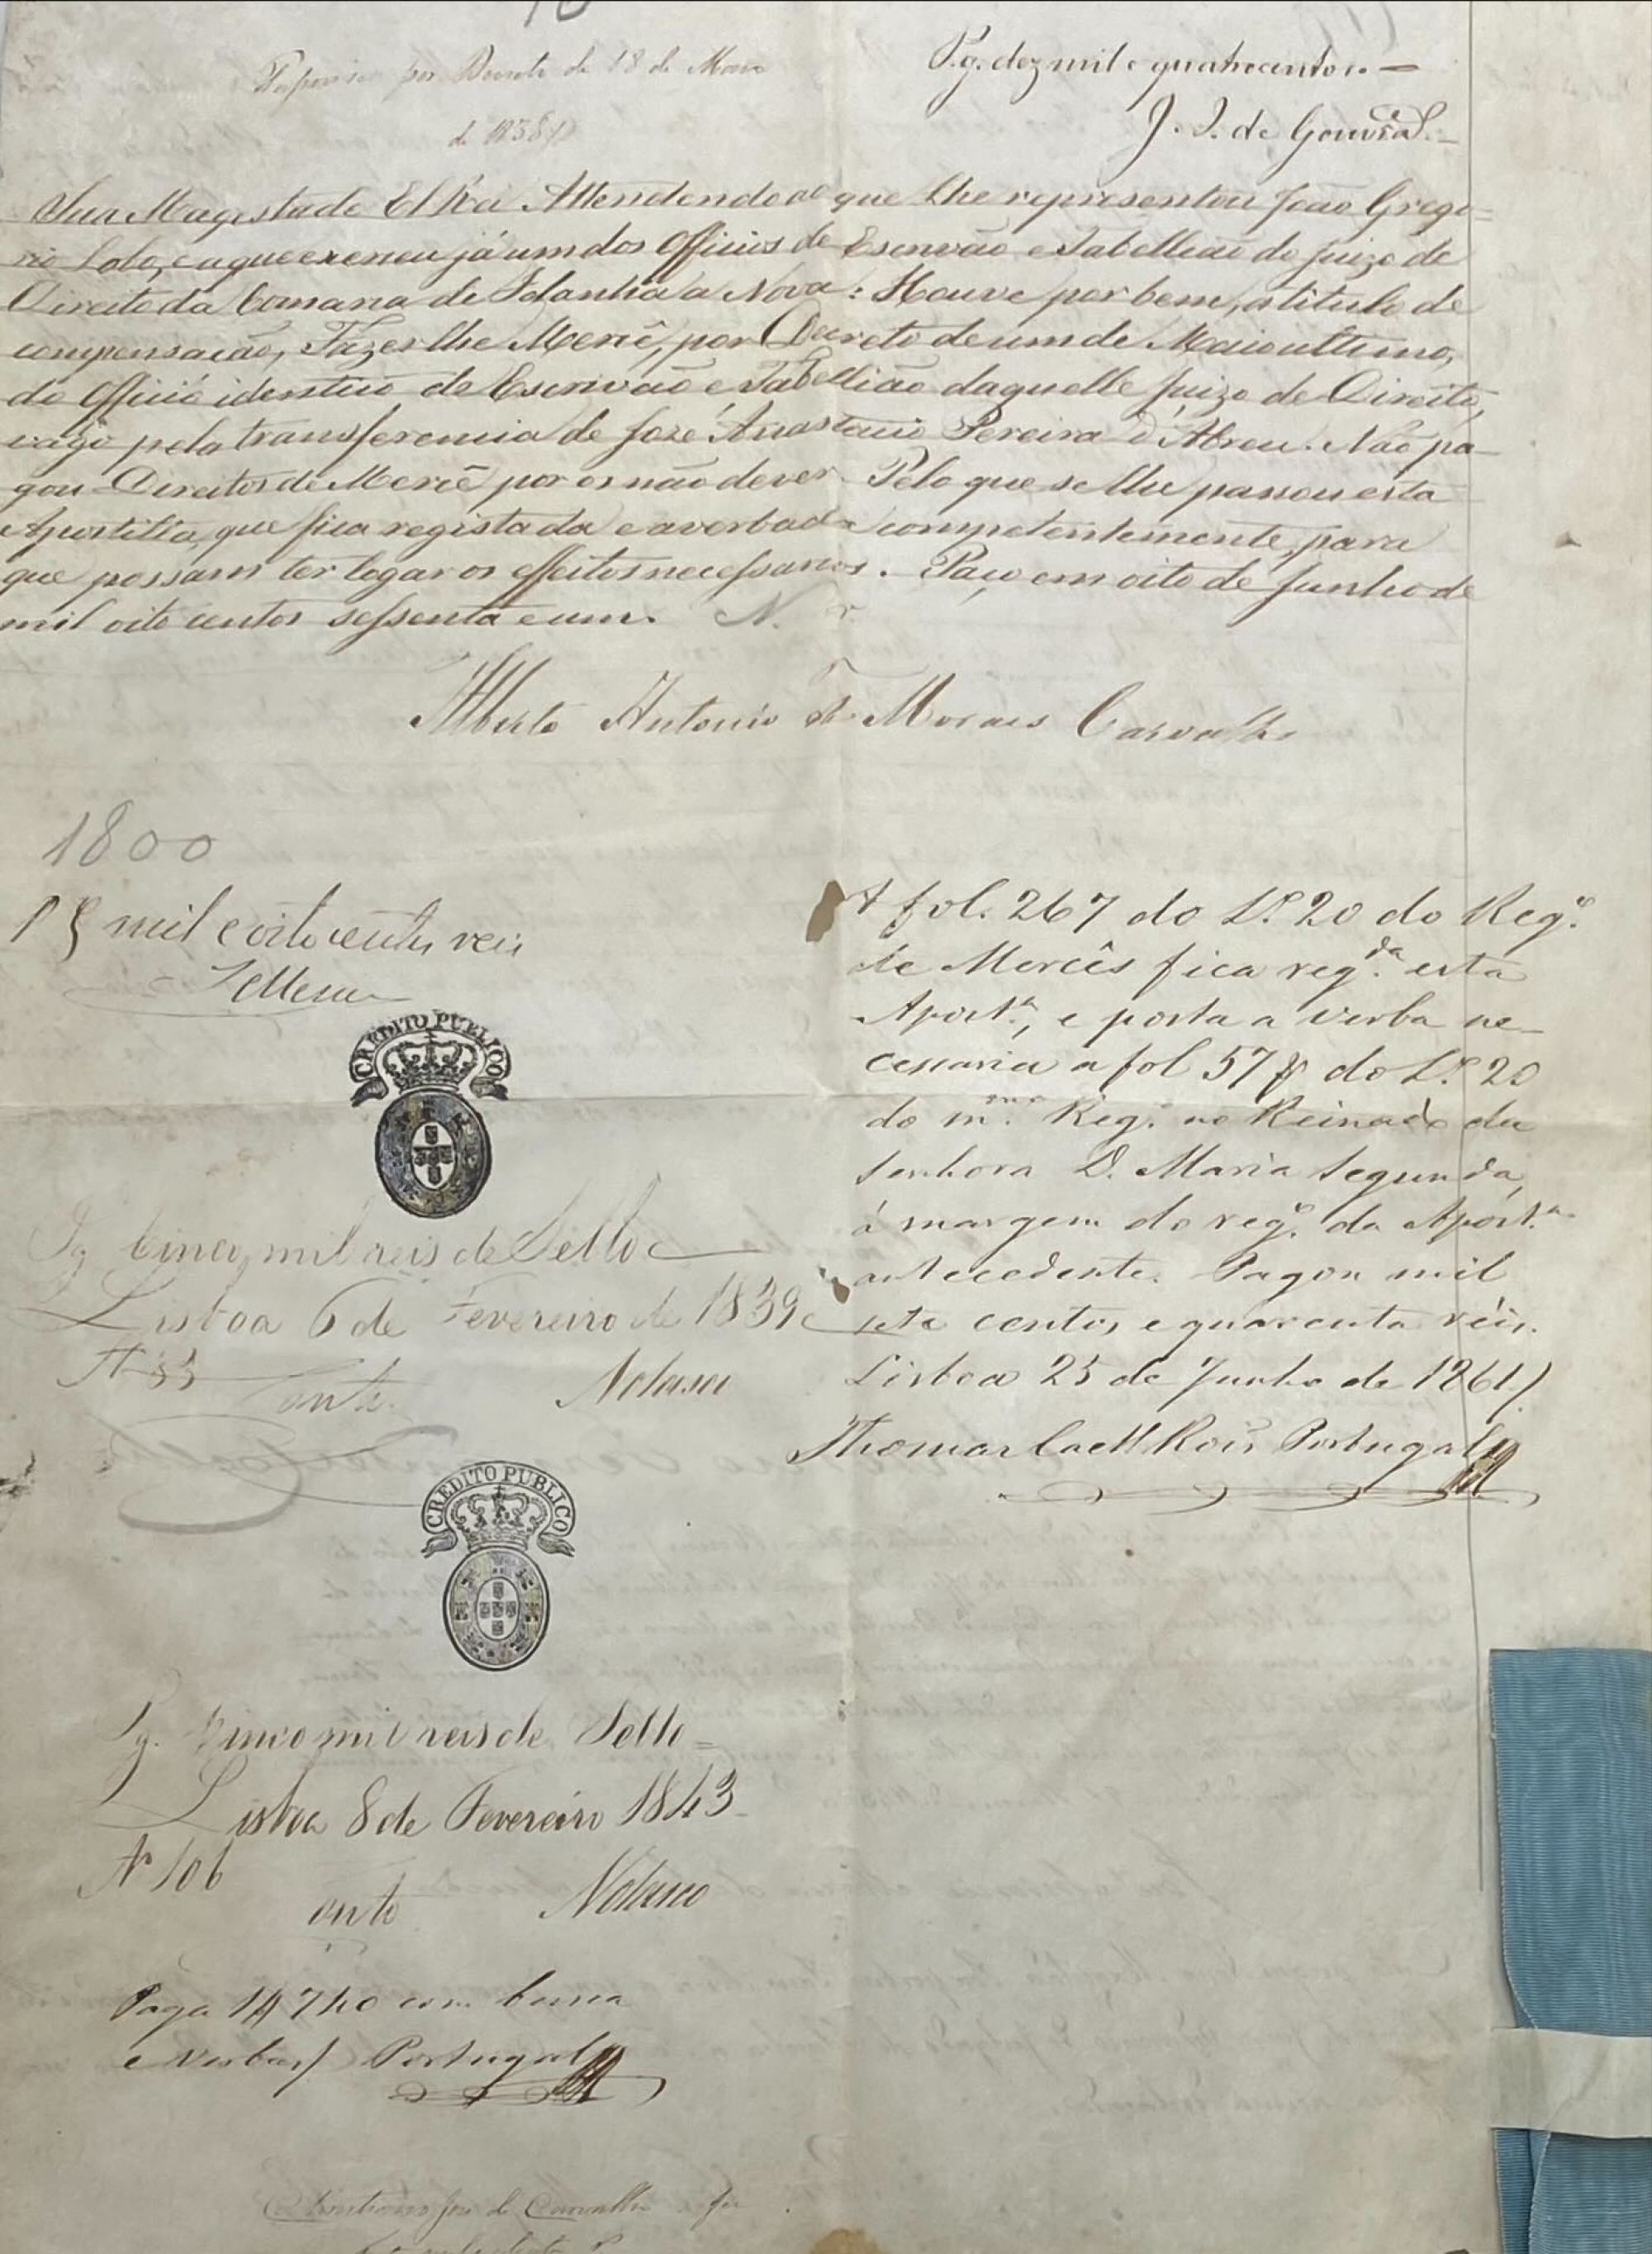 por Decreto de 18 de
de 1838
Pg. dez mil e quatrocentos. —
J. J. de Gouvêa
Sua Magestade El Rei Attendendo ao que lhe representou João Grego=
rio Lobo, e a que exerceu já um dos Officios de Escrivão e Tabellião do Juizo de
Direito da Comarca de Idanha a Nova: Houve por bem, a titulo de
compensação, Fazer lhe Mercê, por Decreto de um de Maio ultimo,
do Officio identico de Escrivão e Tabellião daquelle Juizo de Direito,
vago pela transferencia de José Anastacio Pereira d'Abreu. Não pa-
gou Direitos de Mercê por os não dever. Pelo que se lhe passou esta
Apostilla, que fica registada e averbada competentemente, para
que possam ter logar os effeitos necessarios. Paço, em oito de Junho de
mil oito centos sessenta e um.
Alberto Antonio de Moraes Carvalho
1800
mil e oitocentos reis
CREDITO PUBLICO
Pg Cinco mil reis de Sello
Lisboa 6 de Fevereiro de 1839
Nº 83
Nolasco
CREDITO PUBLICO
Pg. Cinco mil reis de Sello =
Lisboa 8 de Fevereiro 1843
Nº 106
Nolasco
Paga 1$740 com busca
e Verbas / Portugal
A fol. 267 do Lº 20 do Regº
de Mercês fica reg.da esta
Apost.a, e posta a verba ne-
cessaria a fol 57 do Lº 20
do m.mo Reg. no Reinado da
Senhora D. Maria Segunda,
á margem do regº. da Apost.a
antecedente. Pagou mil
sete centos e quarenta réis.
Lisboa 25 de Junho de 1861 /
Thomaz Portugal
José de Carvalho